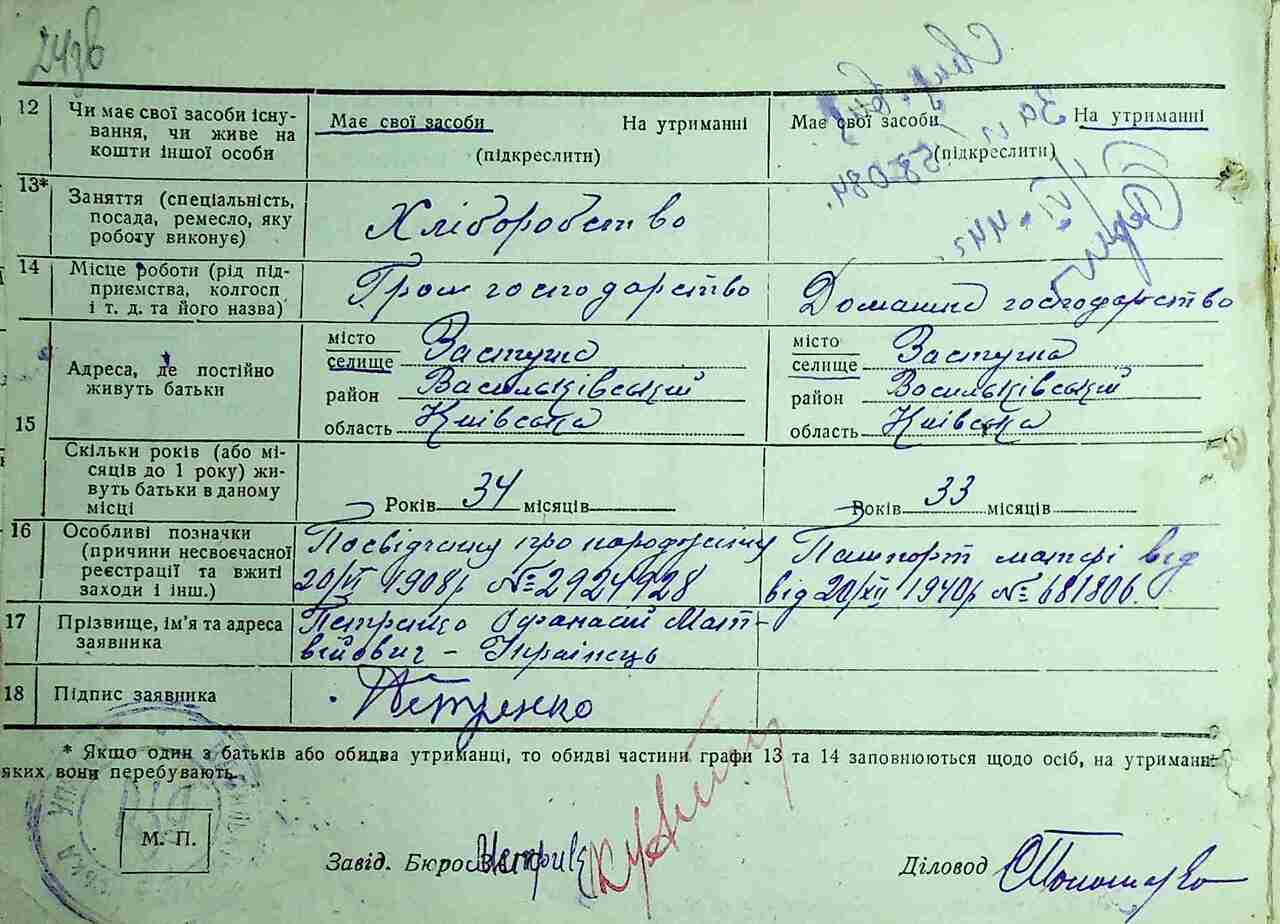 243в
12 Чи має свої засоби існу-
вання, чи живе на
кошти іншої особи
Має свої засоби На утриманні
(підкреслити)
Має свої засоби На утриманні
(підкреслити)
13* Заняття (спеціальність,
посада, ремесло, яку
роботу виконує)
Хліборобство
14 Місце роботи (рід під-
приємства, колгосп
і т. д. та його назва)
Гром господарство
Домашнє господарство
15 Адреса, де постійно
живуть батьки
місто
селище Застугна
район Васильківський
область Київська
місто
селище Застугна
район Васильківський
область Київська
Скільки років (або мі-
сяців до 1 року) жи-
вуть батьки в даному
місці
Років 34 місяців
Років 33 місяців
16 Особливі позначки
(причини несвоєчасної
реєстрації та вжиті
заходи і інш.)
Посвідчення про народження
20/VI 1908р №2924928
Пашпорт матері від
від 20/XII 1940р №681806.
17 Прізвище, ім'я та адреса
заявника
Петренко Афанасій Мат-
війович - Українець
18 Підпис заявника
Петренко
* Якщо один з батьків або обидва утриманці, то обидві частини графи 13 та 14 заповнюються щодо осіб, на утриманні
яких вони перебувають.
М. П.
Завід. Бюро ЗАГС
Діловод Пономаренко